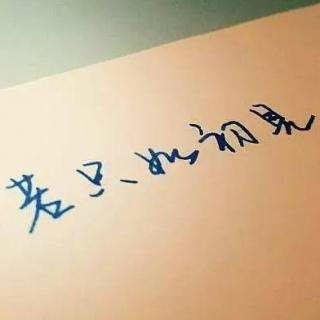 若只如初见